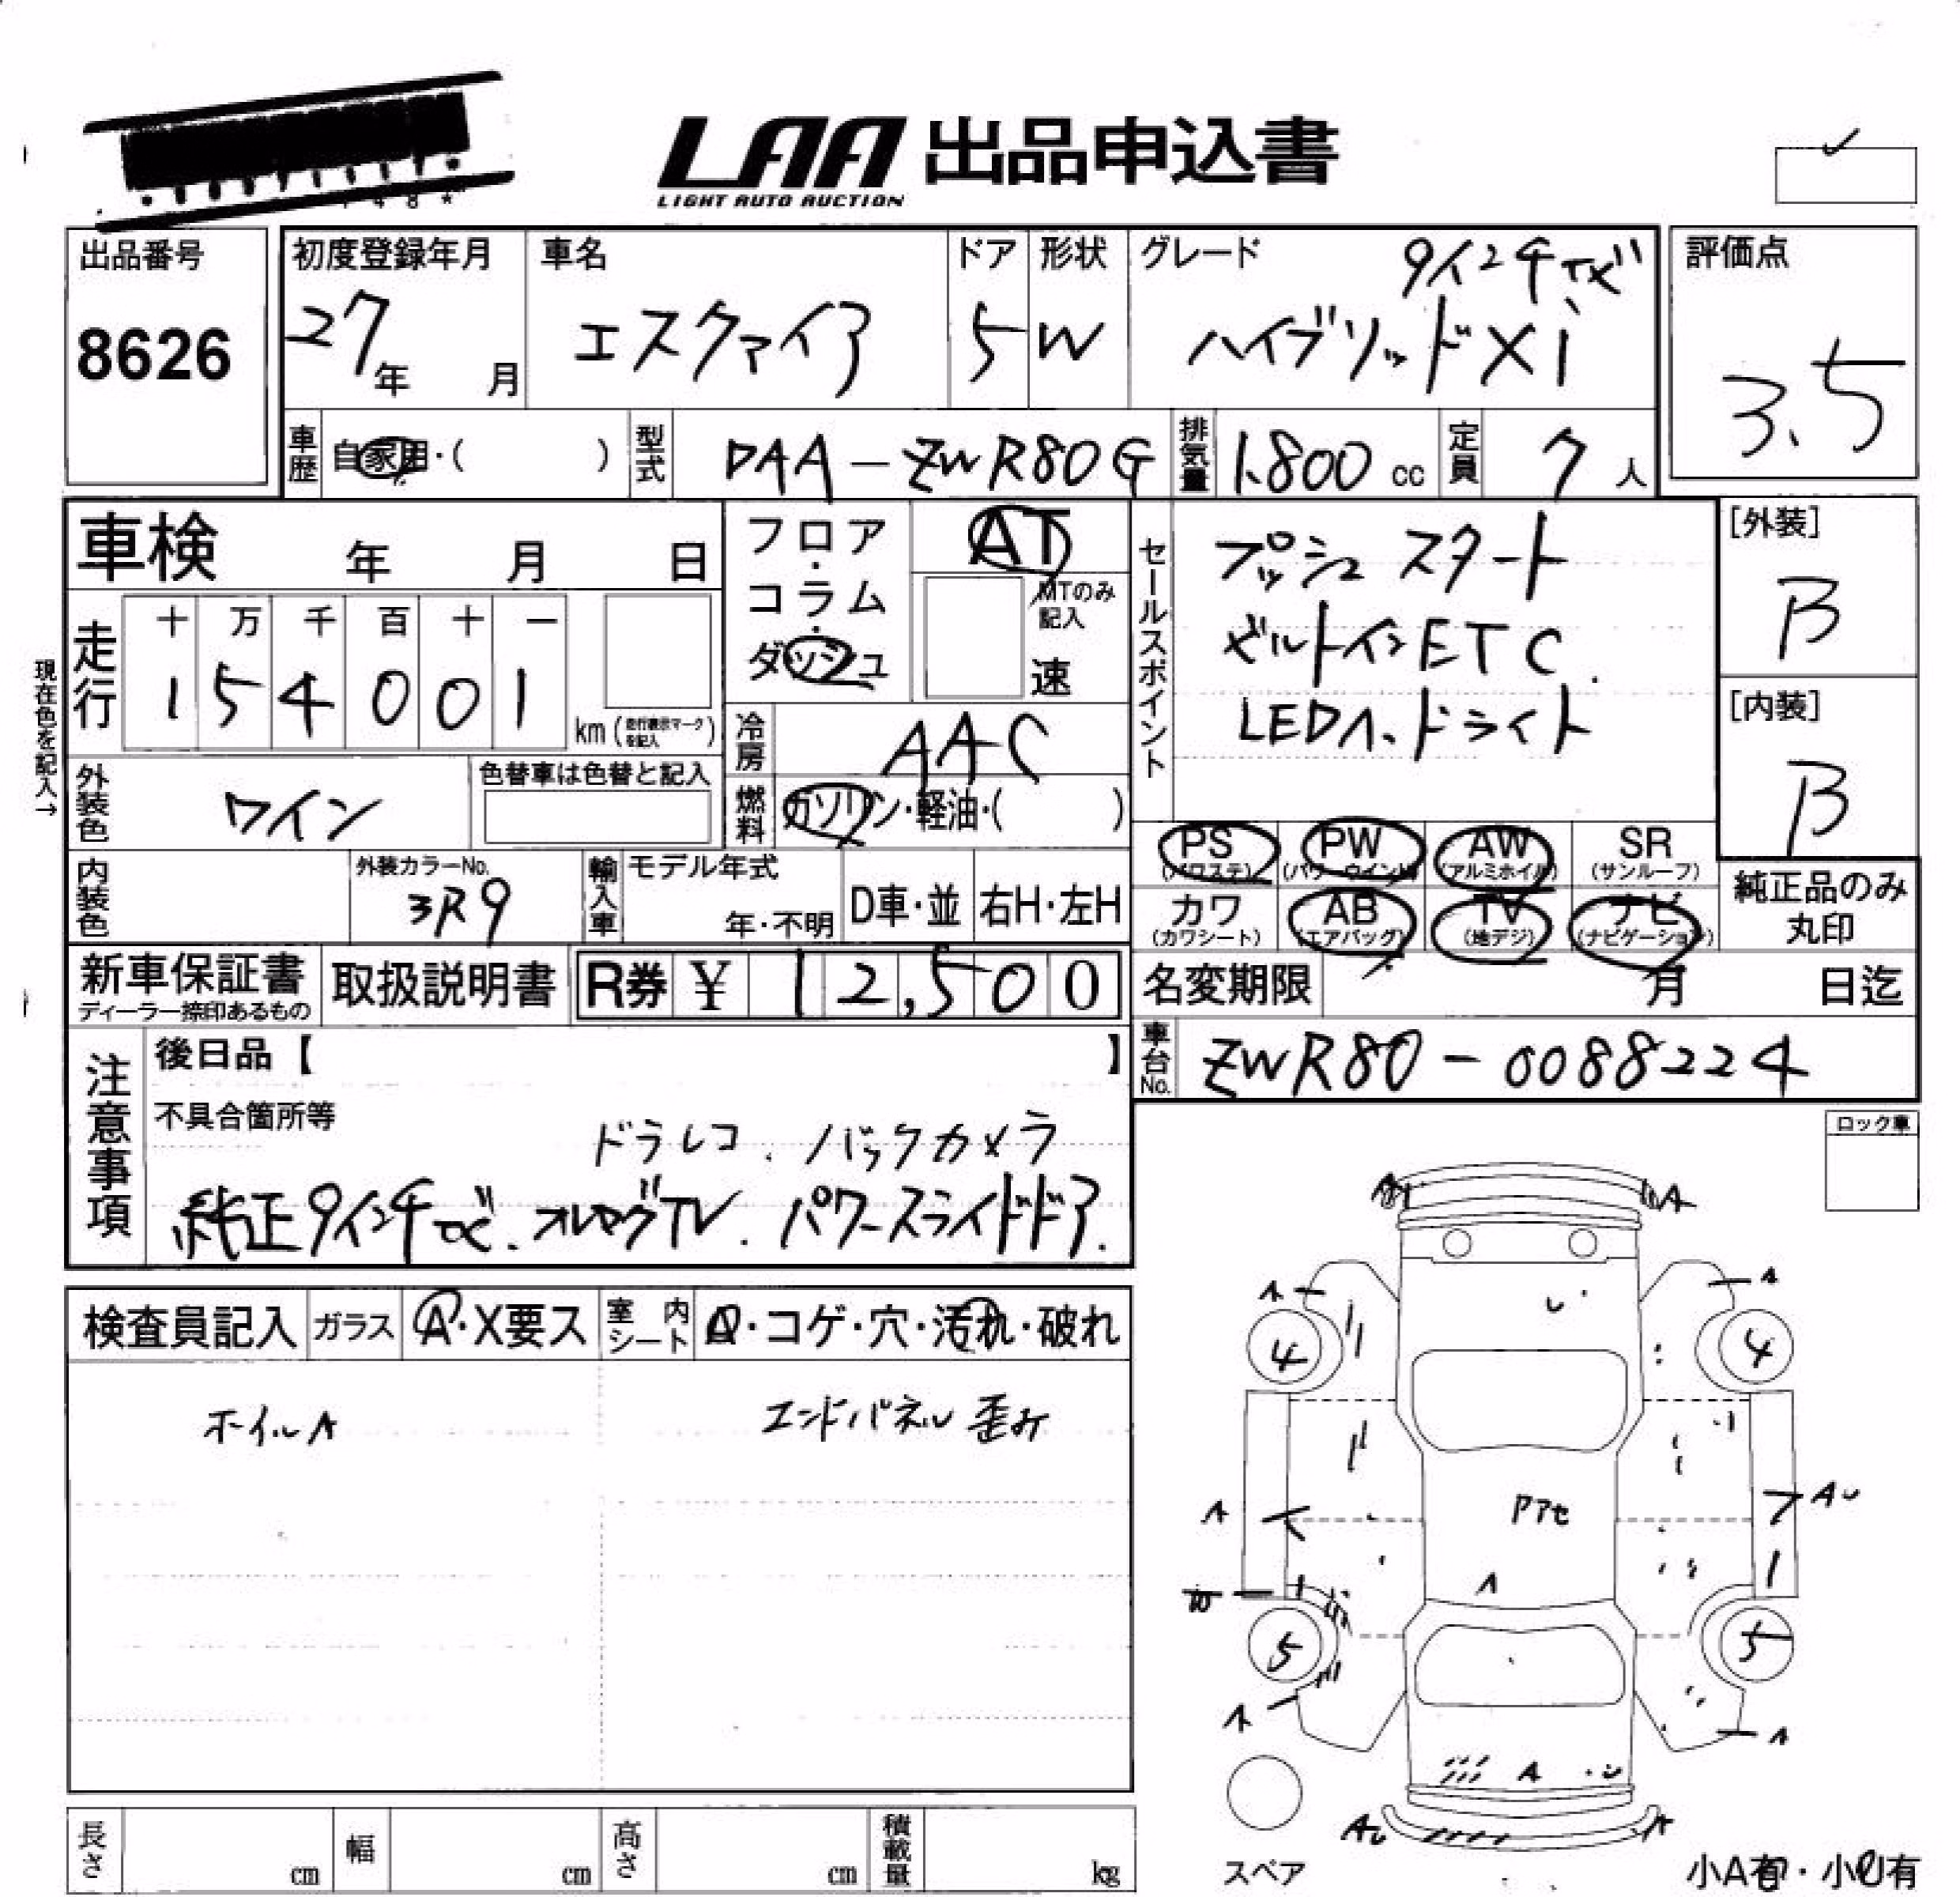 LAA 出品申込書
LIGHT AUTO AUCTION
出品番号
8626
初度登録年月
27年 月
車名
エスクァイア
ドア
5
形状
W
グレード
9インチナビ
ハイブリッドXi
評価点
3.5
車歴 自家用・( )
型式 DAA-ZWR80G
排気量 1.800 cc
定員 7人
車検 年 月 日
フロア・コラム・ダッシュ
AT
MTのみ記入
速
セールスポイント
プッシュスタート
ビルトインETC.
LEDヘッドライト
[外装]
B
[内装]
B
現在色を記入→
走行
十 万 千 百 十 一
1 5 4 0 0 1
km (走行表示マークを記入)
冷房 AAC
燃料 ガソリン・軽油・( )
外装色 ワイン
色替車は色替と記入
PS (パワステ)
PW (パワーウインド)
AW (アルミホイル)
SR (サンルーフ)
カワ (カワシート)
AB (エアバッグ)
TV (地デジ)
ナビ (ナビゲーション)
純正品のみ丸印
内装色
外装カラーNo.
3R9
輸入車
モデル年式
年・不明
D車・並
右H・左H
新車保証書
ディーラー捺印あるもの
取扱説明書
R券 ¥ 12,500
名変期限 月 日迄
車台No. ZWR80-0088224
注意事項
後日品【 】
不具合箇所等
ドラレコ. バックカメラ
純正9インチナビ. フルセグTV. パワースライドドア.
ロック車
検査員記入
ガラス A・X要ス
室内シート Q・コゲ・穴・汚れ・破れ
ホイルA
エンドパネル歪み
A A
A A
4 4
A Aし
Pアセ
A
W
5 5
A A
A
Aし A
スペア
小A有・小U有
長さ cm
幅 cm
高さ cm
積載量 kg